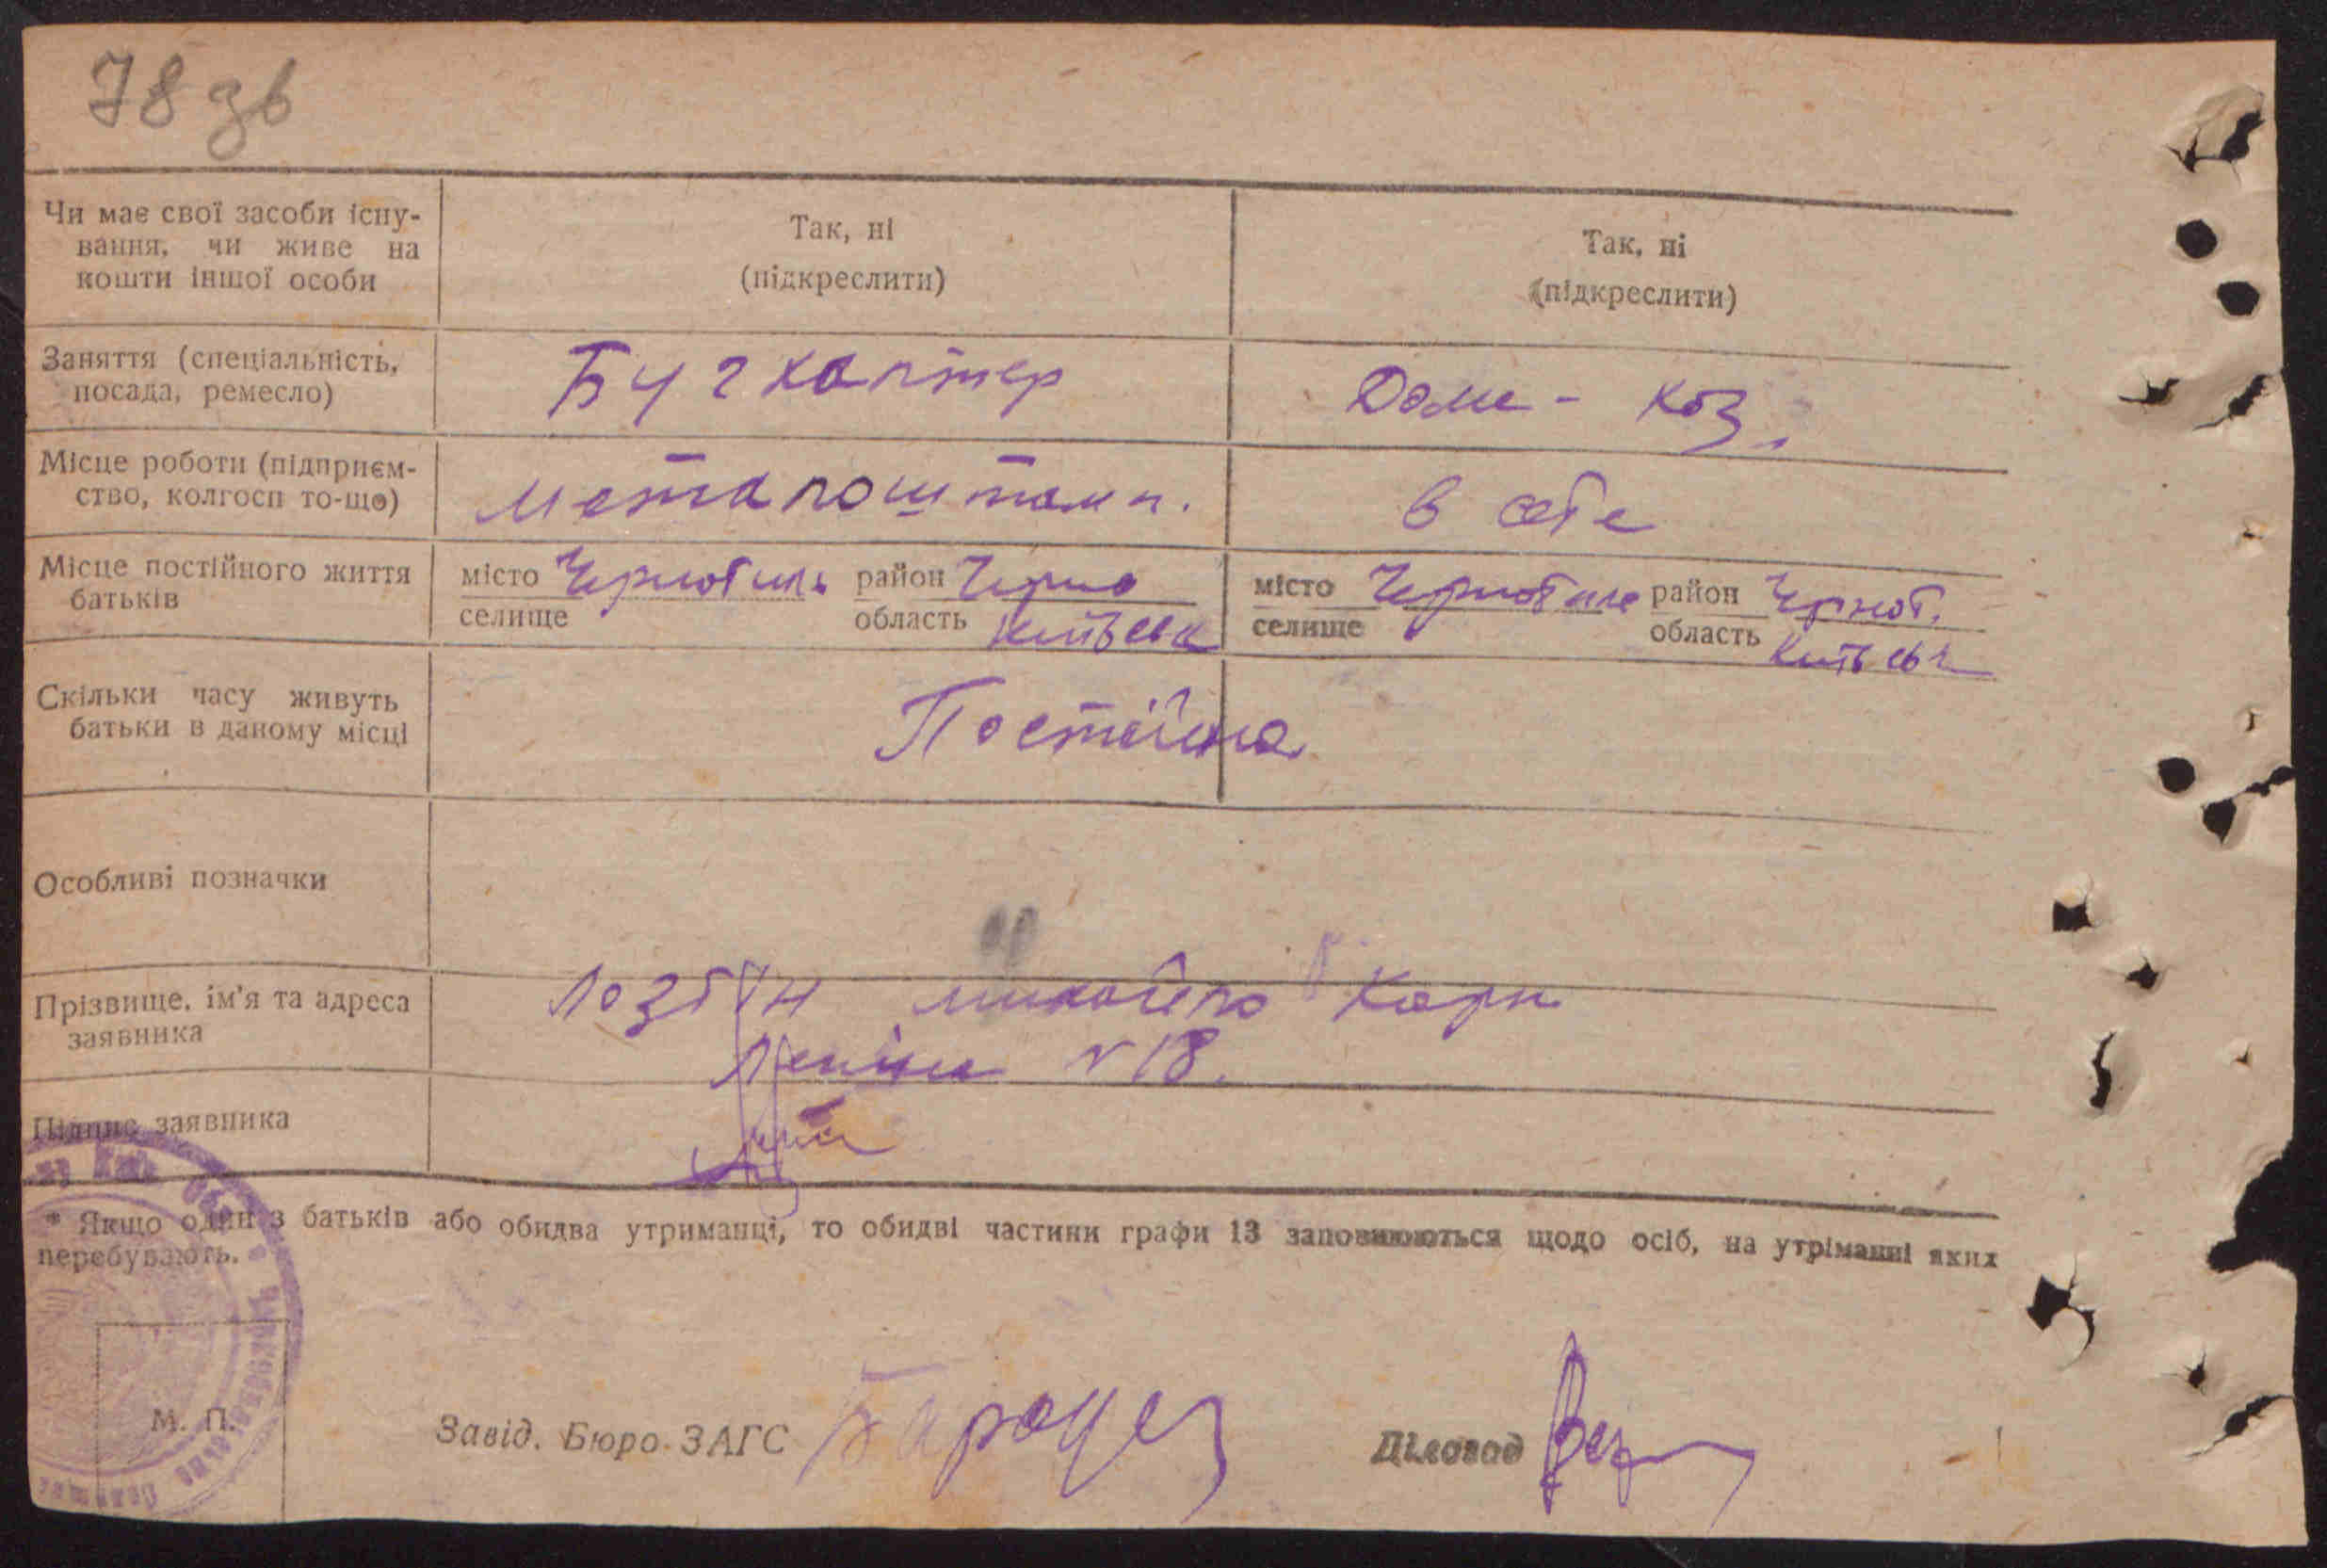 78 зв
Чи має свої засоби існу-
вання, чи живе на
кошти іншої особи
Так, ні
(підкреслити)
Так, ні
(підкреслити)
Заняття (спеціальність,
посада, ремесло)
Бугхалтер
Дома-
Місце роботи (підприєм-
ство, колгосп то-що)
в себе
Місце постійного життя
батьків
місто Чернобиль район Черно
селище область Київськ
місто Чернобиле район Черноб.
селище область Київськ
Скільки часу живуть
батьки в даному місці
Постійно
Особливі позначки
Прізвище, ім'я та адреса
заявника
Михайло Карп
Леніна N 18.
Підпис заявника
* Якщо один з батьків або обидва утриманці, то обидві частини графи 13 заповнюються щодо осіб, на утріманні яких
перебувають.
М. П.
Завід. Бюро ЗАГС
Діловод